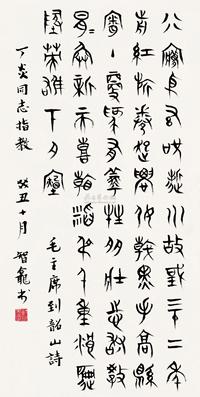 八夢依希咒逝川故園三十二年
前紅旂卷起農奴戟黑手高縣
霸主鞭爲有犧牲多壯志敢教
日月換新天喜看稻菽千重浪徧
地英雄下夕煙 毛主席到韶山詩
丁炎同志指教 癸丑十月 智龕书